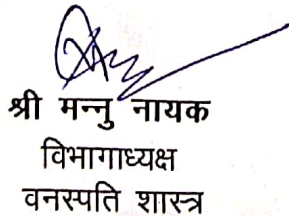 श्री मन्नु नायक
विभागाध्यक्ष
वनस्पति शास्त्र